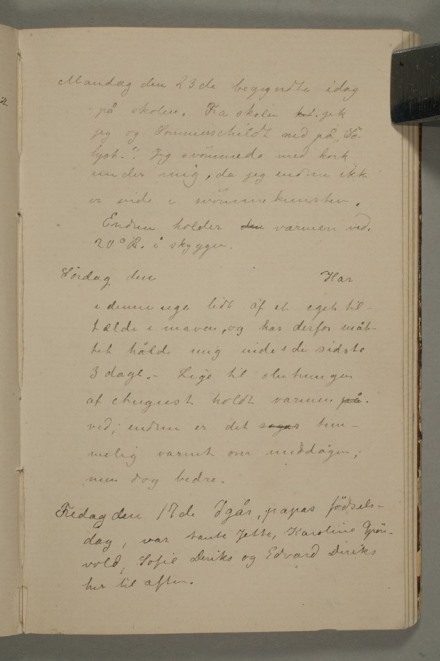 Mandag den 23de begyndte idag
på skolen. Fra skolen gik
jeg og Vommerschildt ned på "Sö-
lyst." Jeg svömmede med kork
under mig, da jeg endnu ikke
er inde i svömmekunsten.
Endnu holder den varmen ved.
20° R. i skyggen.
Lördag den Har
i denne uge lidt af et eget til-
fælde i maven, og har derfor måt-
tet holde mig inde de sidste
3 dage. - Lige til slutningen
af august holdt varmen på
ved; endnu er det temmelig varmt om middagen;
men dog bedre.
Fredag den 17de Igår, papas födsels-
dag, var tante Jette, Karoline Grön-
vold, Sofie Diriks og Edvard Diriks
her til aften.